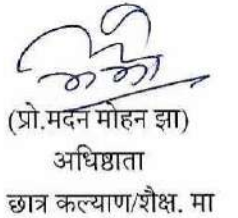 (प्रो.मदन मोहन झा)
अधिष्ठाता
छात्र कल्याण/शैक्ष. मा